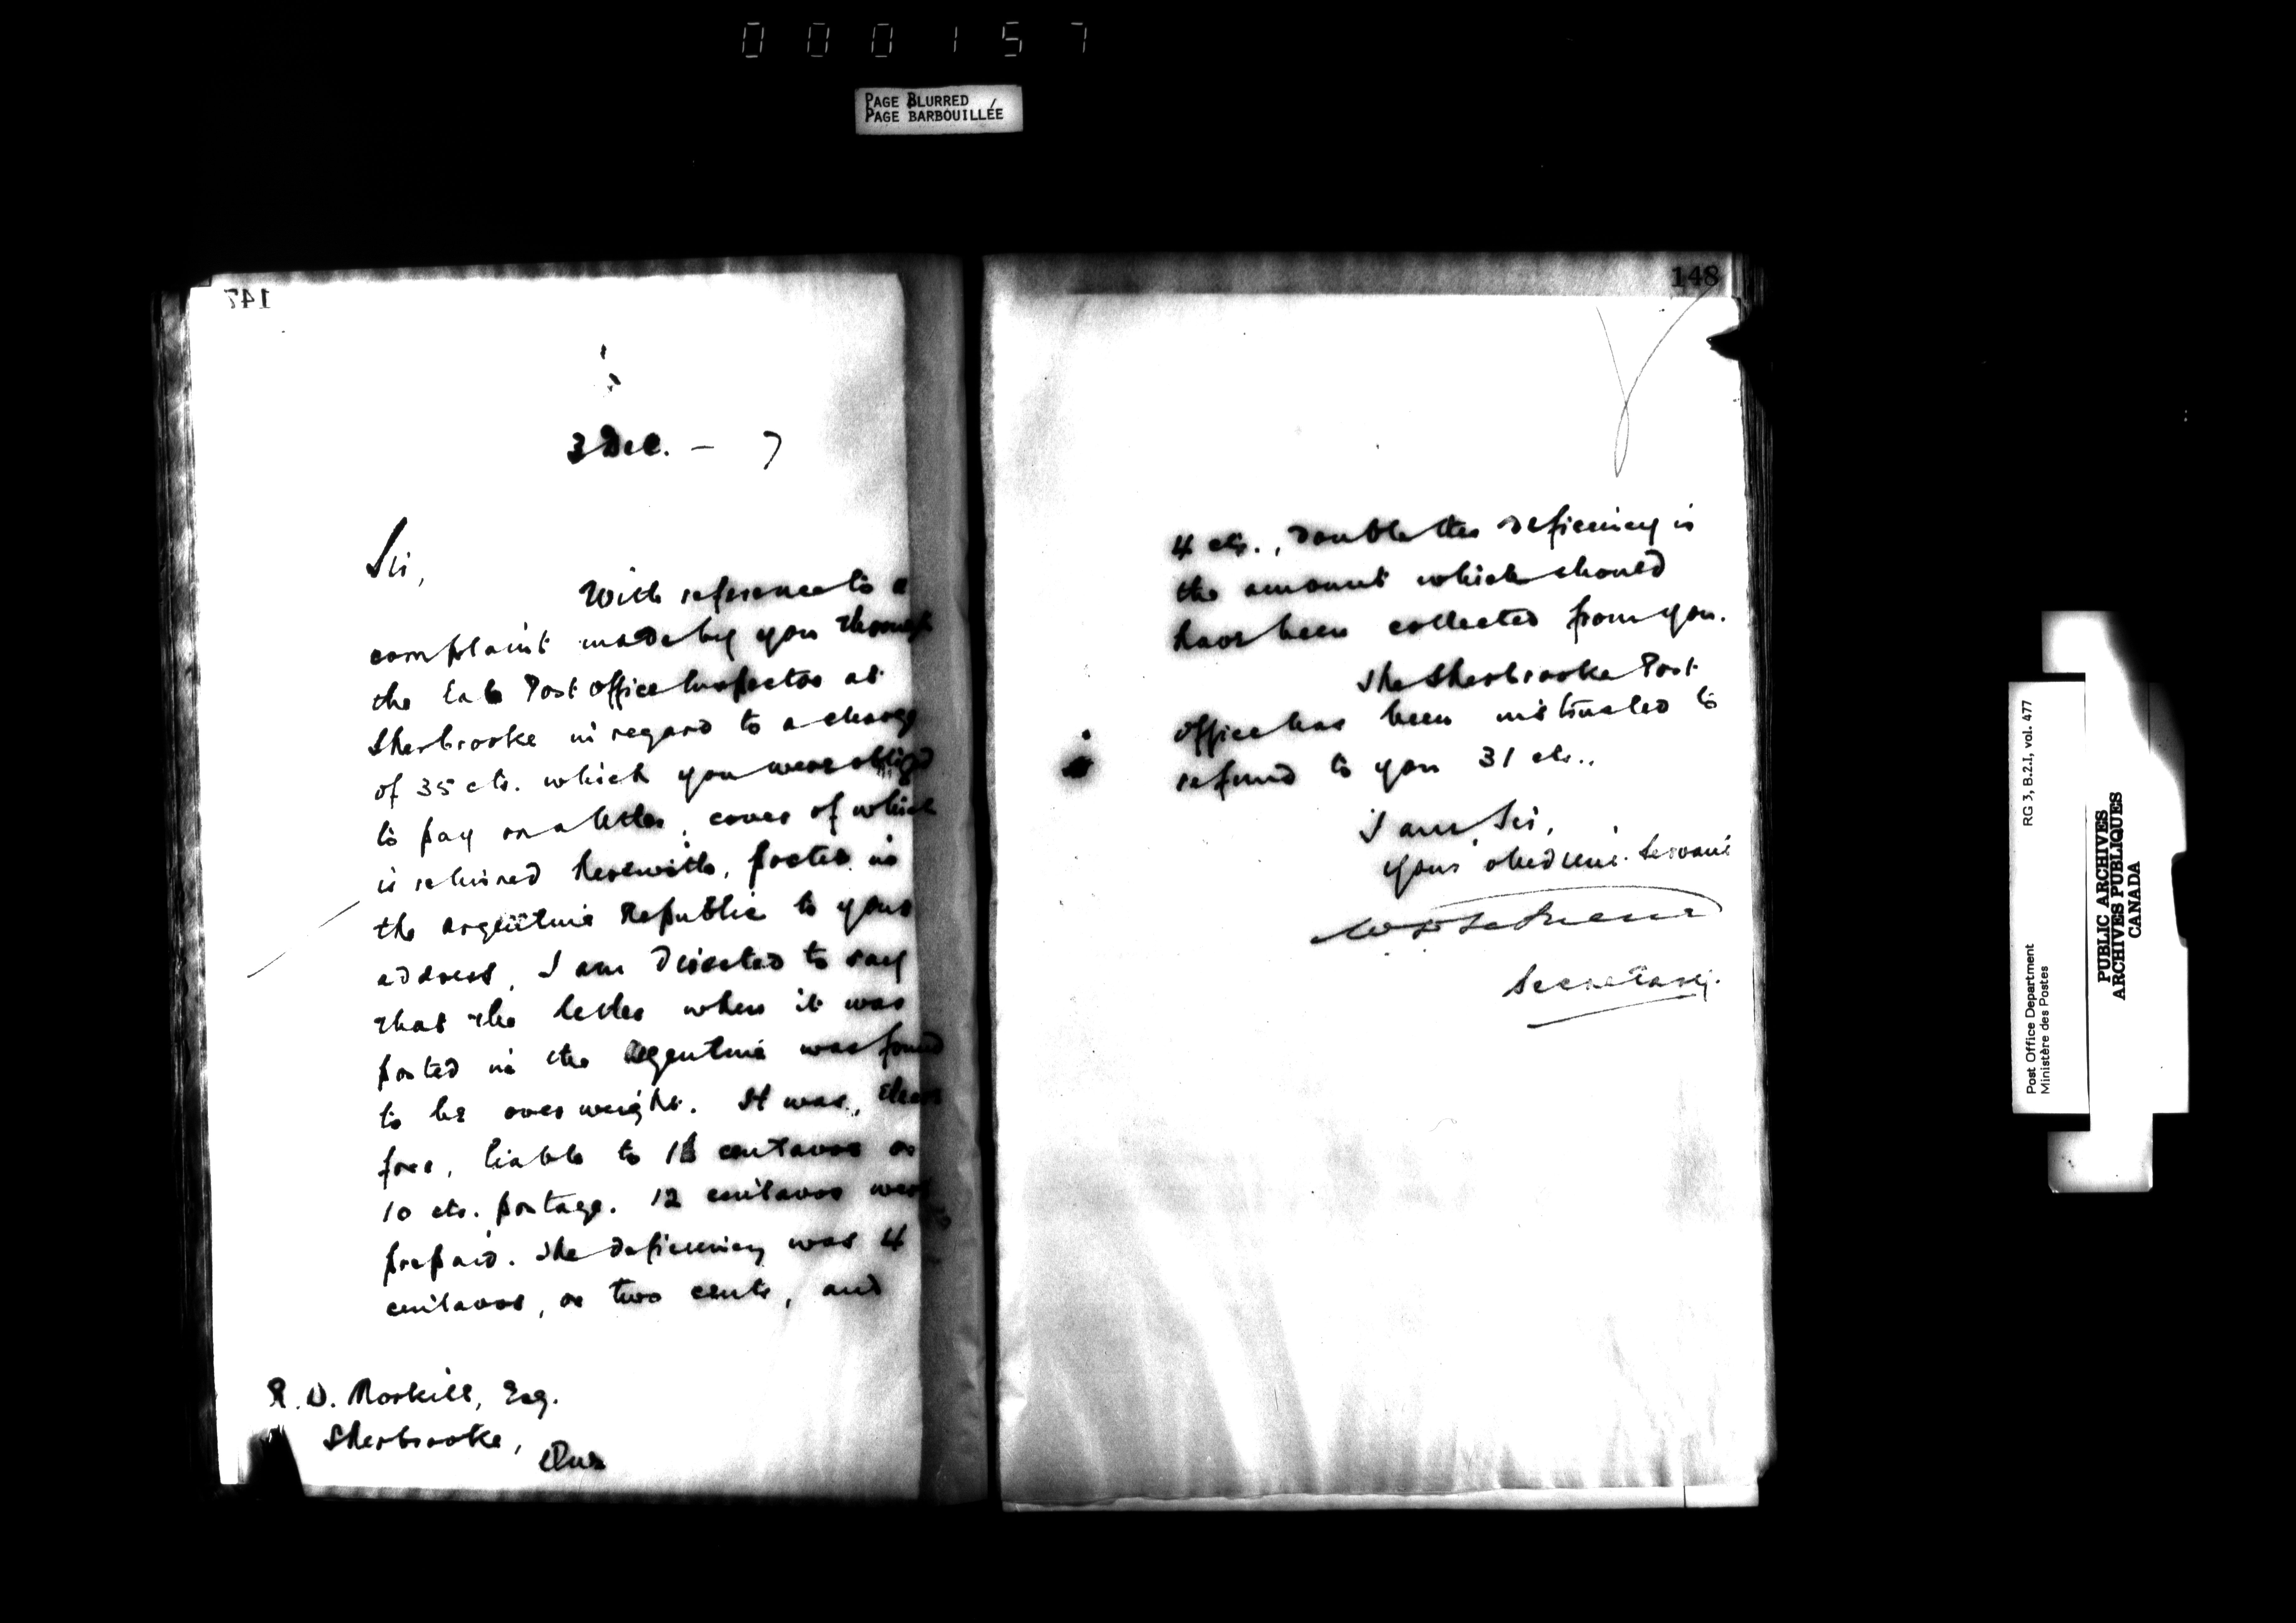 000157
PAGE BLURRED
PAGE BARBOUILLÉE
147
3 Dec. - 7
Sir,
With reference to a
complaint made by you through
the Post Office Inspector at
Sherbrooke in regard to a charge
of 35 cts. which you were obliged
to pay on a letter, cover of which
is returned herewith, posted in
the Argentine Republic to your
address, I am directed to say
that the letter when it was
posted in the Argentine was found
to be overweight. It was, there
fore, liable to centavos or
10 cts. postage. 12 centavos were
prepaid. The deficiency was 4
centavos, or two cents, and
R. D. Morkill, Esq.
Sherbrooke,
Que
148
4 cts., double the deficiency is
the amount which should
have been collected from you.
The Sherbrooke Post
Office has been instructed to
refund to you 31 cts..
I am, Sir,
Your obedient Servant
Secretary.
Post Office Department
Ministère des Postes
RG 3, B.2.I, vol. 477
PUBLIC ARCHIVES
ARCHIVES PUBLIQUES
CANADA